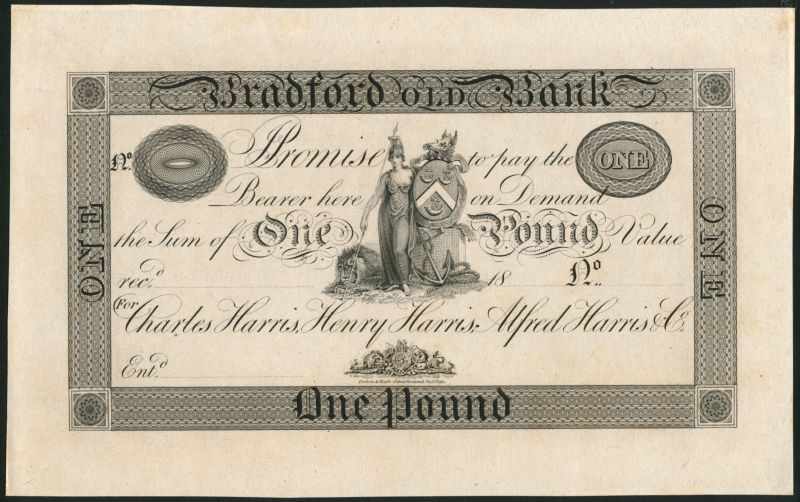 Bradford OLD Bank
No. Promise to pay the ONE
Bearer here on Demand
the Sum of One Pound Value
rec.d 18 No.
(For
Charles Harris, Henry Harris, Alfred Harris & Co.
Ent.d
Perkins & Heath Patent Hardened Steel Plate.
One Pound
ONE
ONE